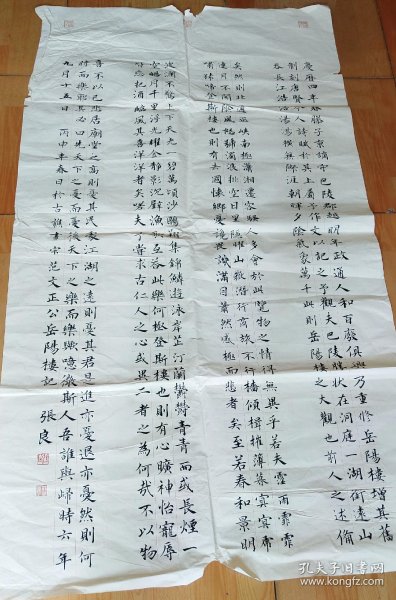 慶曆四年春滕子京謫守巴陵郡越明年政通人和百廢俱興乃重修岳陽樓增其舊
制刻唐賢今人詩賦於其上屬予作文以記之予觀夫巴陵勝狀在洞庭一湖銜遠山
吞長江浩浩湯湯橫無際涯朝暉夕陰氣象萬千此則岳陽樓之大觀也前人之述備
矣然則北通巫峽南極瀟湘遷客騷人多會於此覽物之情得無異乎若夫霪雨霏霏
連月不開陰風怒號濁浪排空日星隱曜山岳潛形商旅不行檣傾楫摧薄暮冥冥虎
嘯猿啼登斯樓也則有去國懷鄉憂讒畏譏滿目蕭然感極而悲者矣至若春和景明
波瀾不驚上下天光一碧萬頃沙鷗翔集錦鱗游泳岸芷汀蘭鬱鬱青青而或長煙一
空皓月千里浮光耀金靜影沉璧漁歌互答此樂何極登斯樓也則有心曠神怡寵辱
皆忘把酒臨風其喜洋洋者矣嗟夫予嘗求古仁人之心或異二者之為何哉不以物
喜不以己悲居廟堂之高則憂其民處江湖之遠則憂其君是進亦憂退亦憂然則何
時而樂耶其必曰先天下之憂而憂後天下之樂而樂歟噫微斯人吾誰與歸時六年
九月十五日 丙申年春日於古譙書宋范文正公岳陽樓記 張良
孔夫子旧书网
www.kongfz.com